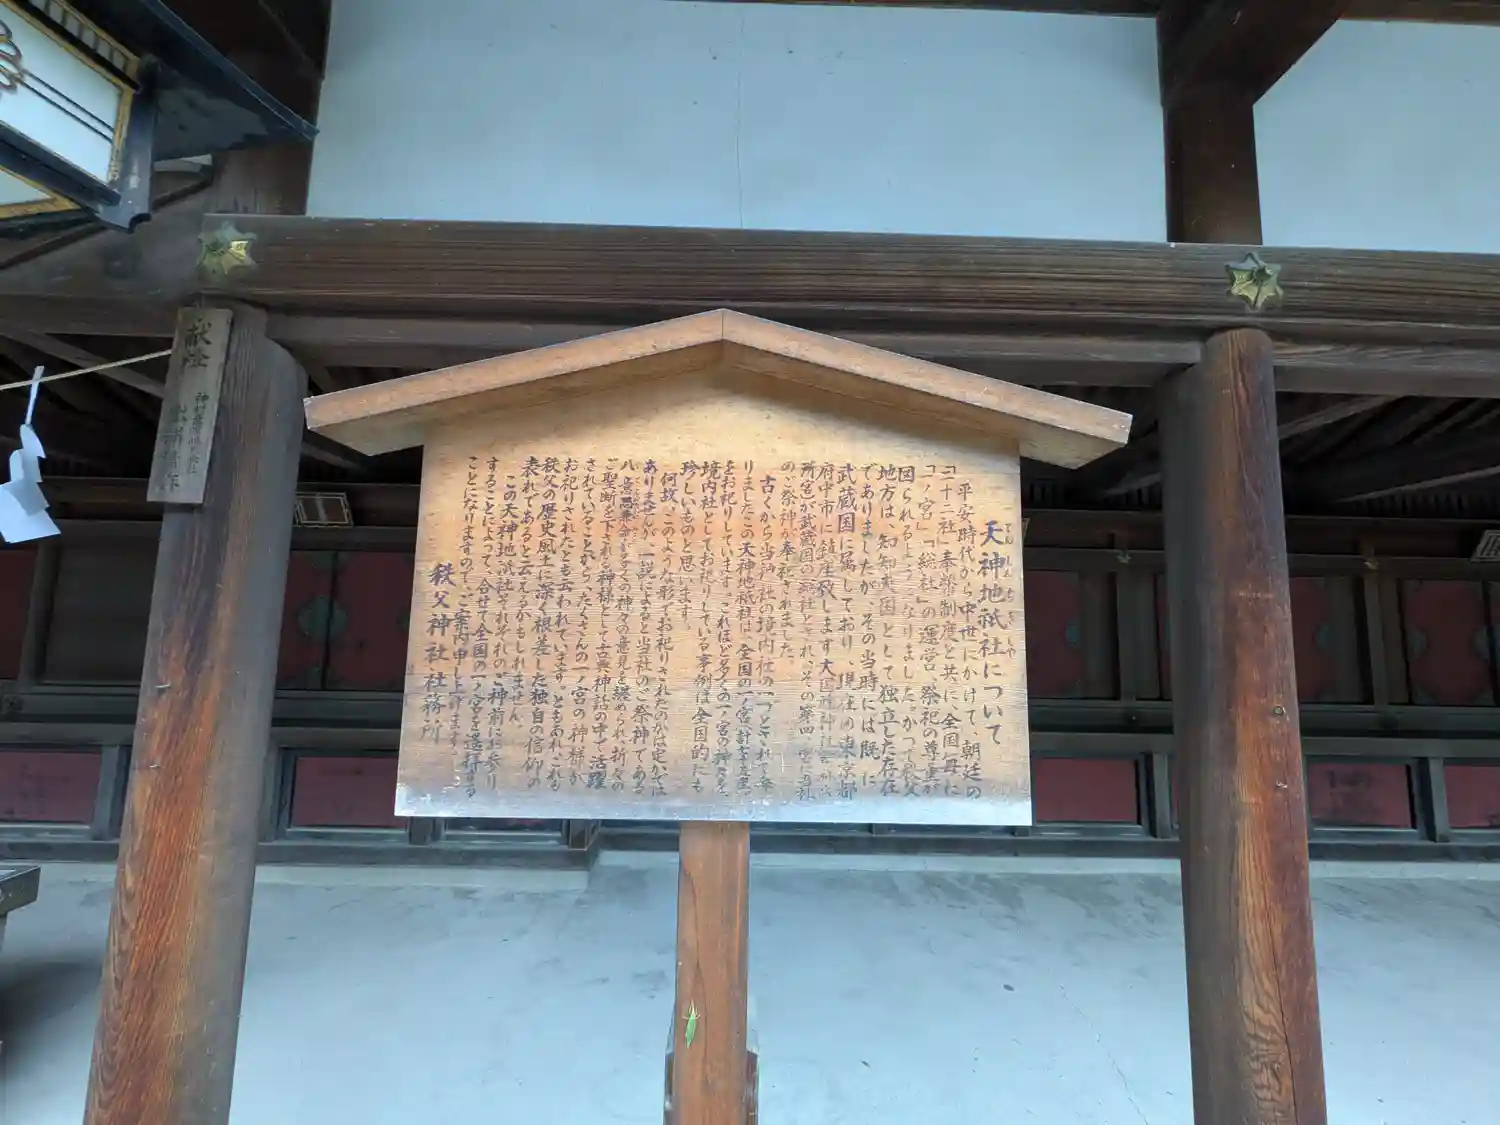 天神地祇社について
てんしんちぎしゃ
平安時代から中世にかけて、朝廷の
「二十二社」奉幣制度と共に、全国毎に
「一ノ宮」「総社」の運営、祭祀の尊重が
図られるようになりました。かつて秩父
地方は、知知夫国として独立した存在
でありましたが、その当時には既に
武蔵国に属しており、現在の東京都
府中市に鎮座致します大国魂神社
が武蔵国の総社とされ、その第四
のご祭神が奉祀されました。
古くから当神社の境内社の一つとされて
りましたこの天神地祇社は、全国の一ノ宮(計七十五座)
をお祀りしています。これほど多くの一ノ宮の神々を
境内社としてお祀りしている事例は全国的にも
珍しいものと思います。
何故、このような形でお祀りされたのか定かでは
ありませんが、一説によると当社のご祭神である
八意思兼命が多くの神々の意見を纏められ、折々の
ご聖断を下される神様として古典神話の中で活躍
されていることから、たくさんの一ノ宮の神様が
お祀りされたとも云われています。ともあれ、これも
秩父の歴史風土に深く根差した独自の信仰の
表れであると云えるかもしれません。
この天神地祇社それぞれのご神前にお参り
することによって、合せて全国の一ノ宮を遥拝する
ことになりますので、ご案内申し上げます。
秩父神社社務所
献燈